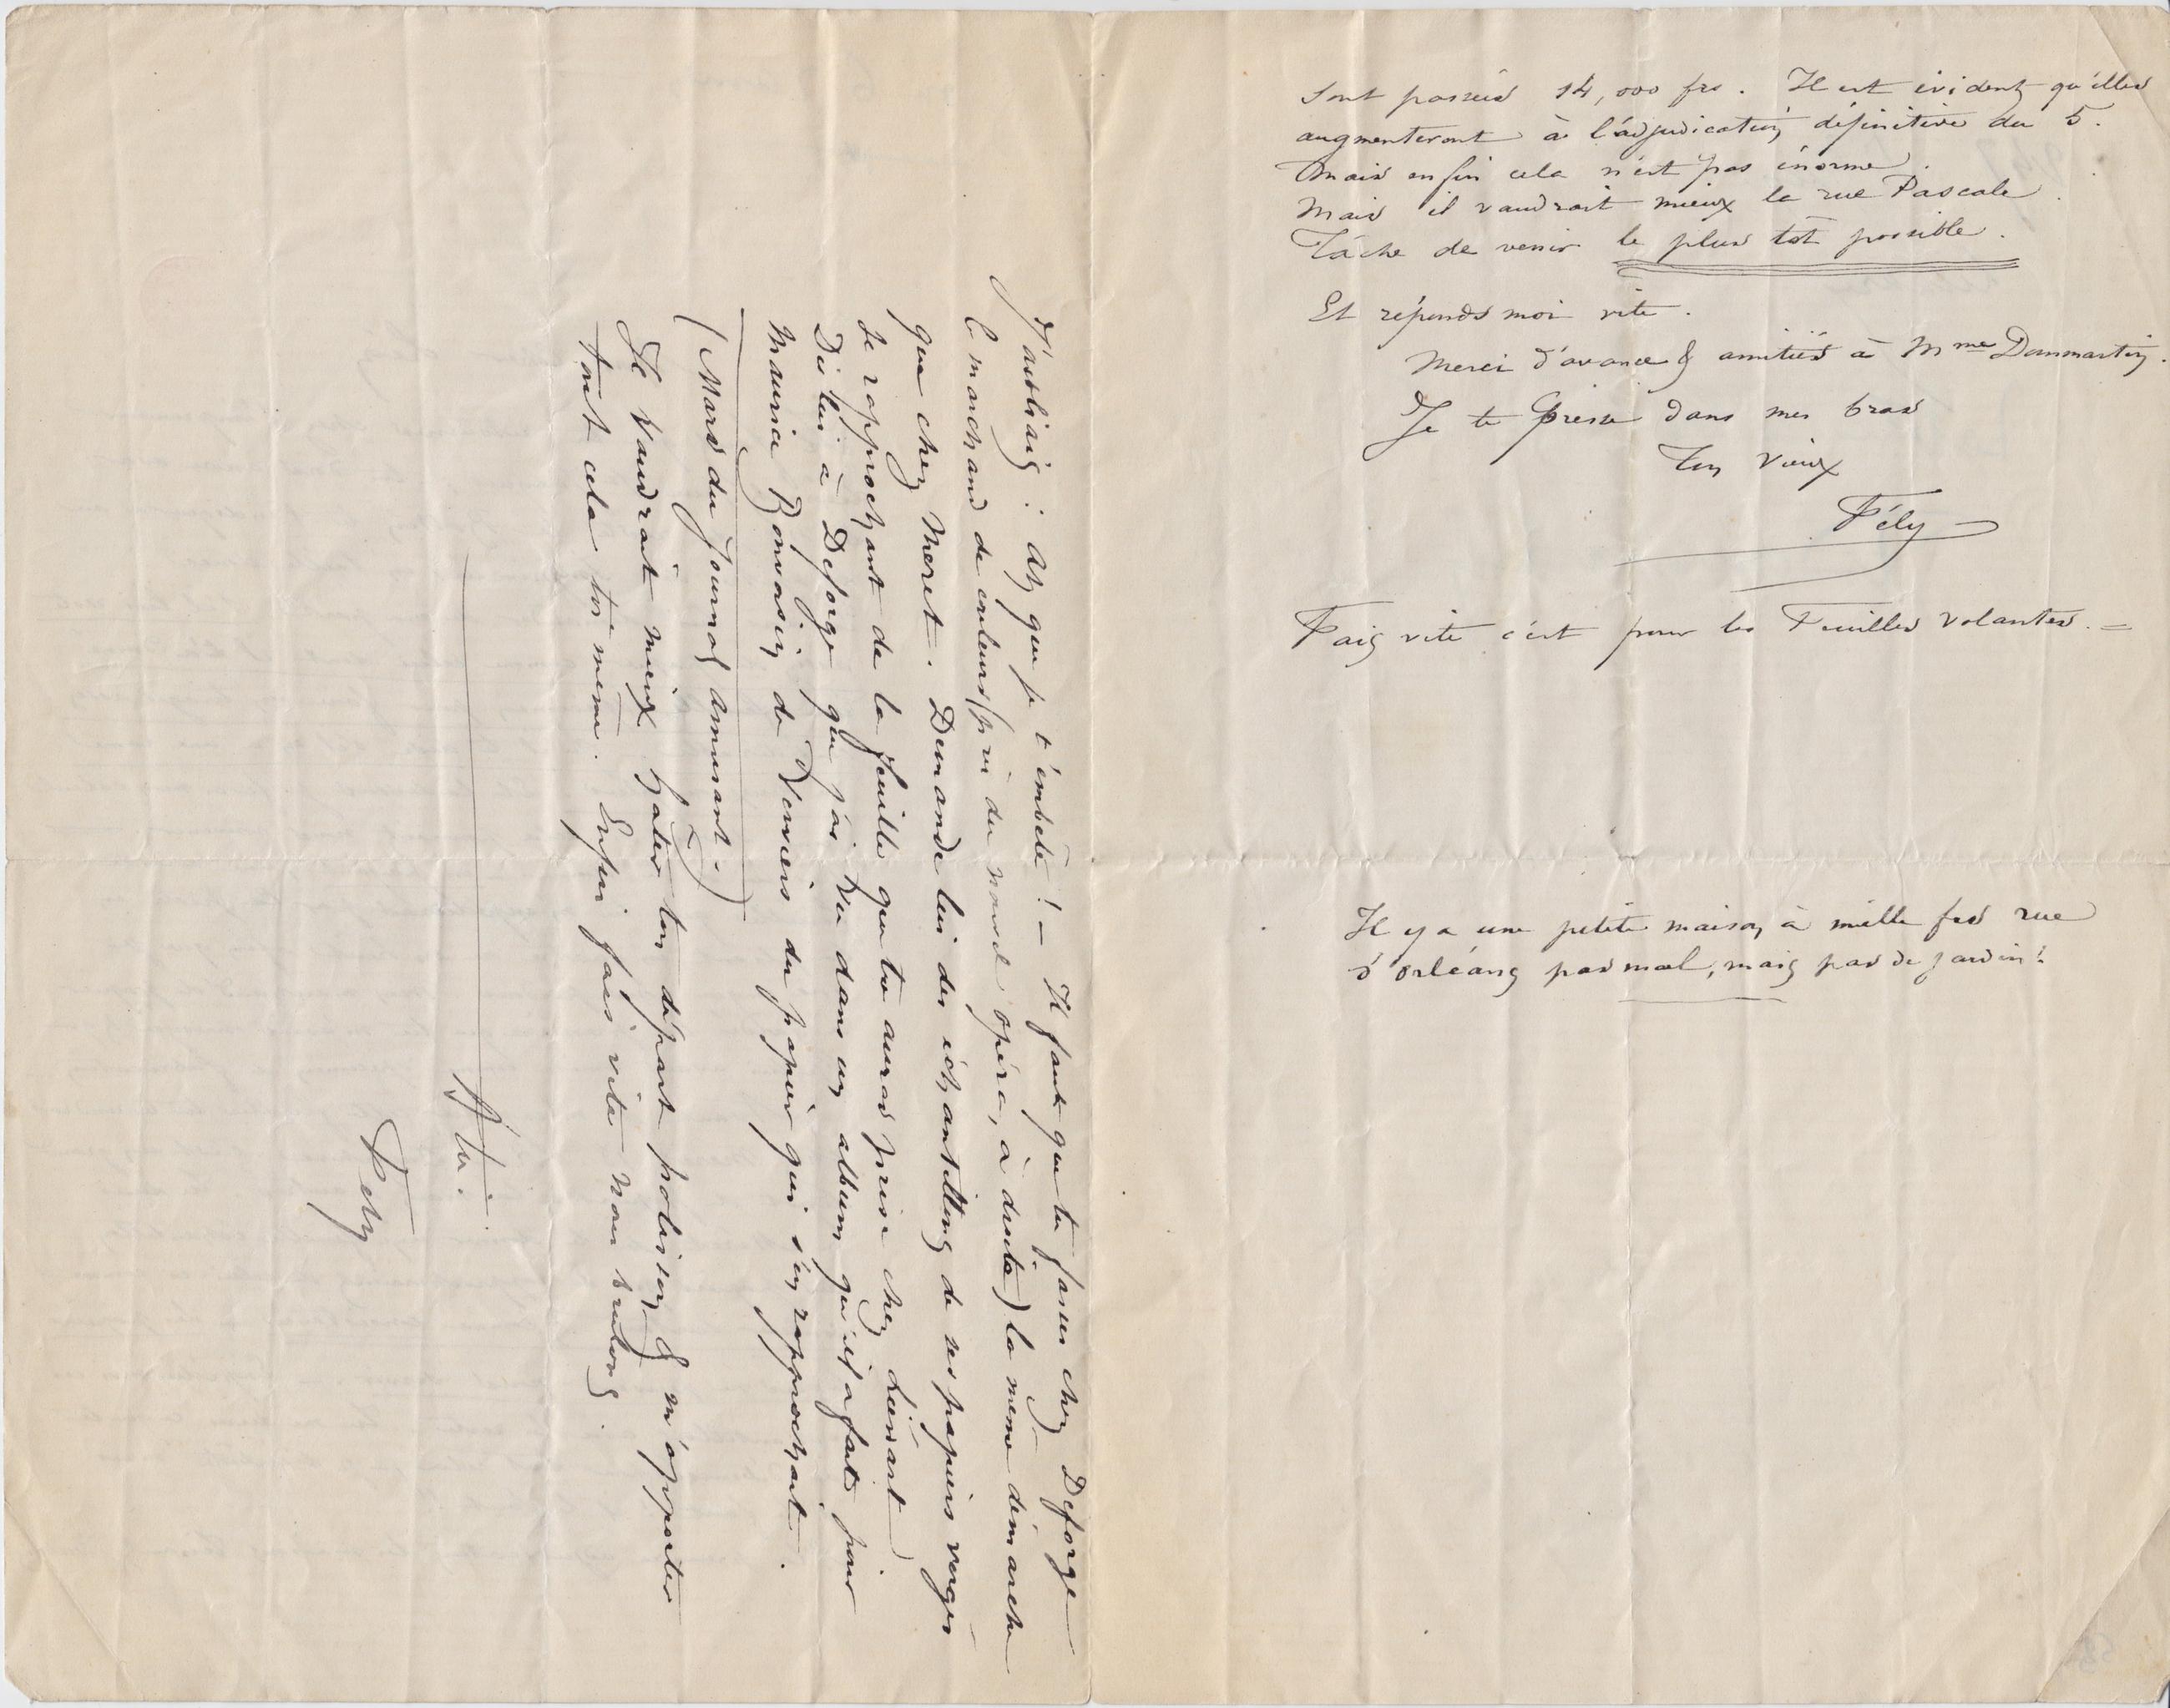 sont passées 14,000 frs. Il est évident qu'elles
augmenteront à l'adjudication définitive du 5.
Mais enfin cela n'est pas énorme.
Mais il vaudrait mieux la rue Pascale.
Tâche de venir le plus tôt possible.
Et réponds moi vite.
Merci d'avance & amitiés à Mme Dommartin.
Je te presse dans mes bras
Ton vieux
Fély
Fais vite c'est pour les Feuilles volantes. =
Il y a une petite maison à mille frs rue
d'Orléans pas mal, mais pas de jardin!
J'oubliais : Ah que je t'embête ! – Il faut que tu fasses chez Deforge
le marchand de couleurs (près du nouvel opéra, à droite) la même démarche
que chez Meret. Demande lui des échantillons de ses papiers vergés
se rapprochant de la feuille que tu auras prise chez Liénart.
Dis lui à Deforge que j'ai vu dans un album qu'il a fait pour
Maurice Bonvoisin de Verviers du papier qui s'en rapprochait.
(Mars du Journal amusant.)
Il vaudrait mieux hâter ton départ polisson & m'apporter
tout cela toi même. Enfin fais vite nous brulons.
A toi.
Fély